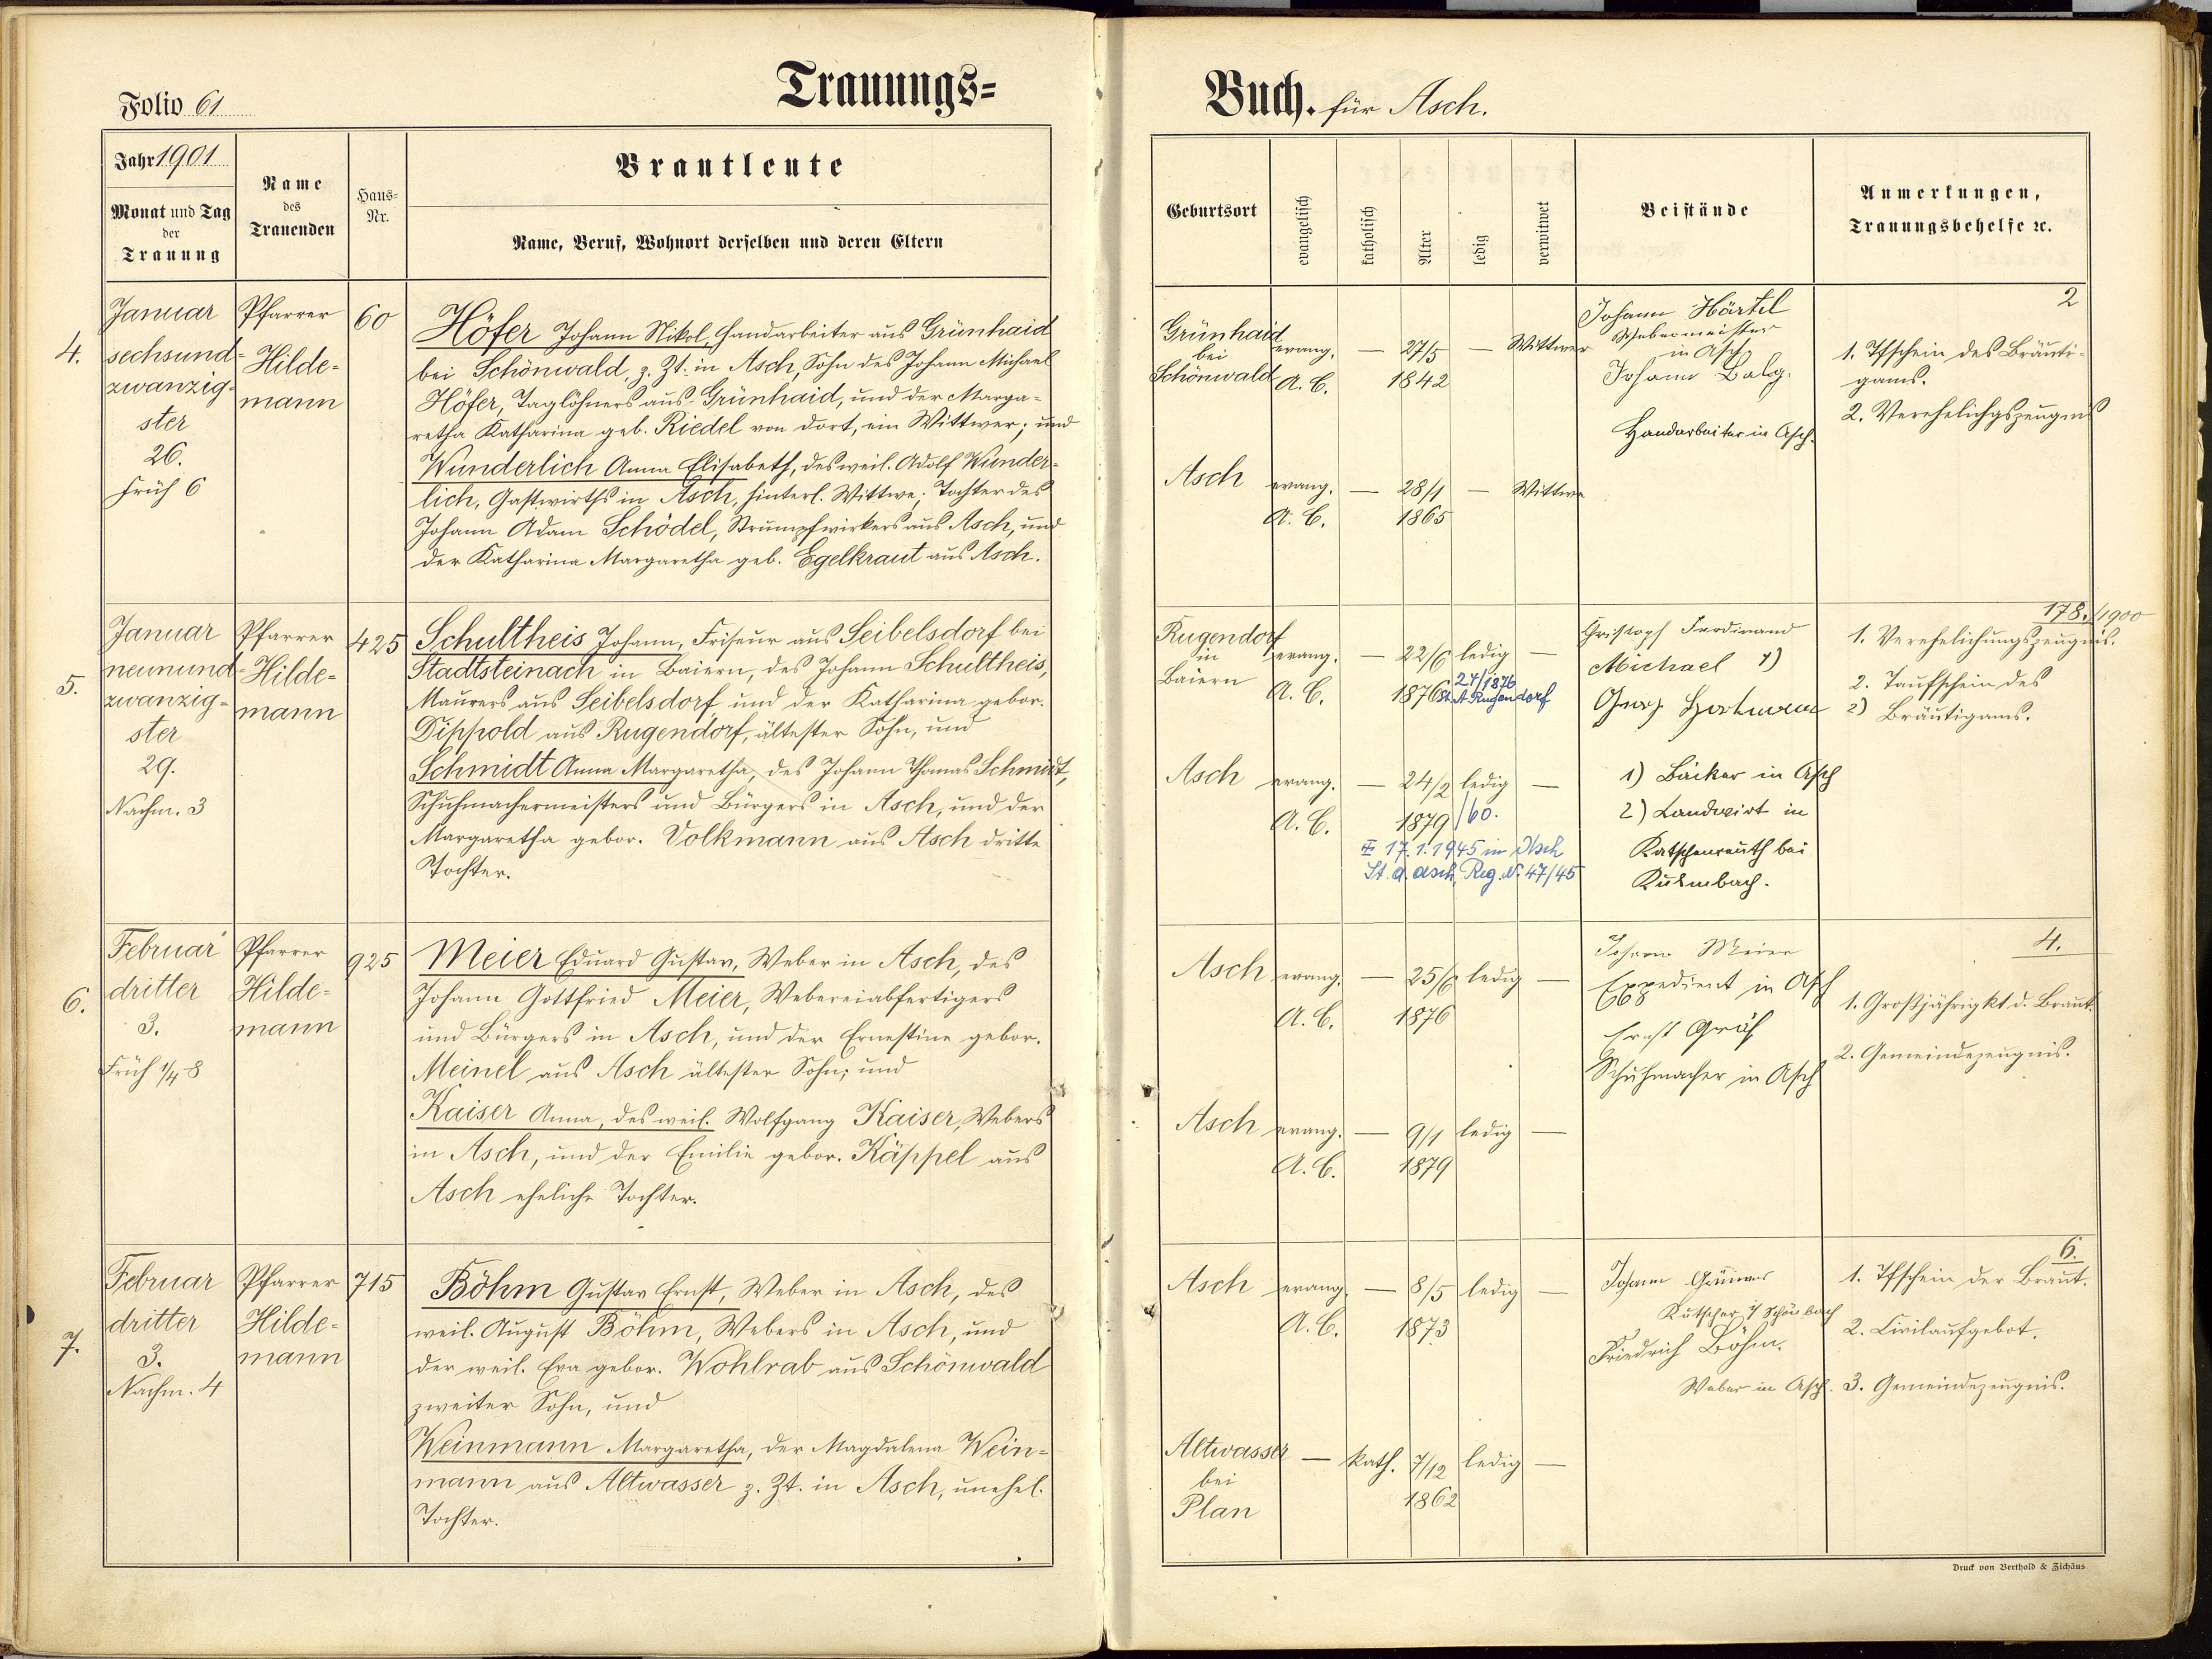 Trauungs=
Buch. für Asch.
Folio 61
Jahr 1901
Monat und Tag
der
Trauung
Name
des
Trauenden
Haus-
Nr.
Brautleute
Name, Beruf, Wohnort derselben und deren Eltern
Geburtsort
evangelisch
katholisch
Alter
ledig
verwitwet
Beistände
Anmerkungen,
Trauungsbehelfe ꝛc.
4.
Januar
sechsund=
zwanzig=
ster
26.
Früh 6
Pfarrer
Hilde=
mann
60
Höfer Johann Nikol, Handarbeiter aus Grünhaid
bei Schönwald, z. Zt. in Asch, Sohn des Johann Michael
Höfer, Taglöhners aus Grünhaid, und der Marga=
retha Katharina geb. Riedel von dort, ein Wittwer; und
Wunderlich Anna Elisabeth, des weil. Adolf Wunder=
lich, Gastwirths in Asch, hinterl. Wittwe; Tochter des
Johann Adam Schödel, Strumpfwirkers aus Asch, und
der Katharina Margaretha geb. Egelkraut aus Asch.
Grünhaid
bei
Schönwald
evang.
A. C.
—
27/5
1842
—
Wittwer
Asch
evang.
A. C.
—
28/1
1865
—
Wittwe
Johann Härtel
Webermeister
in Asch
Johann Balg.
Handarbeiter in Asch.
2
1. Tfschein des Bräuti-
gams.
2. Verehelichgszeugnis
5.
Januar
neunund=
zwanzig=
ster
29.
Nachm. 3
Pfarrer
Hilde=
mann
425
Schultheis Johann, Friseur aus Seibelsdorf bei
Stadtsteinach in Baiern, des Johann Schultheis,
Maurers aus Seibelsdorf und der Katharina gebor.
Dippold aus Rugendorf, ältester Sohn, und
Schmidt Anna Margaretha, des Johann Thomas Schmidt,
Schuhmachermeisters und Bürgers in Asch, und der
Margaretha gebor. Volkmann aus Asch dritte
Tochter.
Rugendorf
in
Baiern
evang.
A. C.
—
22/6
1876
ledig
—
24/1876
St. A. Rugendorf
Asch
evang.
A. C.
—
24/2
1879
ledig
—
/60.
17.1.1945 in Asch
St. A. Asch, Reg. Nr. 47/45
Christoph Ferdinand
Michael 1)
Georg 2)
1) Bäcker in Asch
2) Landwirt in
Katschenreuth bei
Kulmbach.
178./1900
1. Verehelichungszeugnis.
2. Taufschein des
Bräutigams.
6.
Februar
dritter
3.
Früh 1/4 8
Pfarrer
Hilde=
mann
925
Meier Eduard Gustav, Weber in Asch, des
Johann Gottfried Meier, Webereiabfertigers
und Bürgers in Asch, und der Ernestine gebor.
Meinel aus Asch ältester Sohn; und
Kaiser Anna, des weil. Wolfgang Kaiser, Webers
in Asch, und der Emilie gebor. Käppel aus
Asch eheliche Tochter.
Asch
evang.
A. C.
—
25/6
1876
ledig
—
Asch
evang.
A. C.
—
9/1
1879
ledig
—
Johann Meier
Expedient in Asch
668
Ernst Gräf
Schuhmacher in Asch
4.
1. Großjährigkt d. Braut.
2. Gemeindezeugnis.
7.
Februar
dritter
3.
Nachm. 4
Pfarrer
Hilde=
mann
715
Böhm Gustav Ernst, Weber in Asch, des
weil. August Böhm, Webers in Asch, und
der weil. Eva gebor. Wohlrab aus Schönwald
zweiter Sohn, und
Weinmann Margaretha, der Magdalena Wein=
mann aus Altwasser z. Zt. in Asch, unehel.
Tochter.
Asch
evang.
A. C.
—
8/5
1873
ledig
—
Altwasser
bei
Plan
—
kath.
7/12
1862
ledig
—
Johann Grüner
Kutscher i/ Schönbach
Friedrich Böhm.
Weber in Asch.
6.
1. Tfschein der Braut.
2. Civilaufgebot.
3. Gemeindezeugnis.
Druck von Berthold & Zichäus